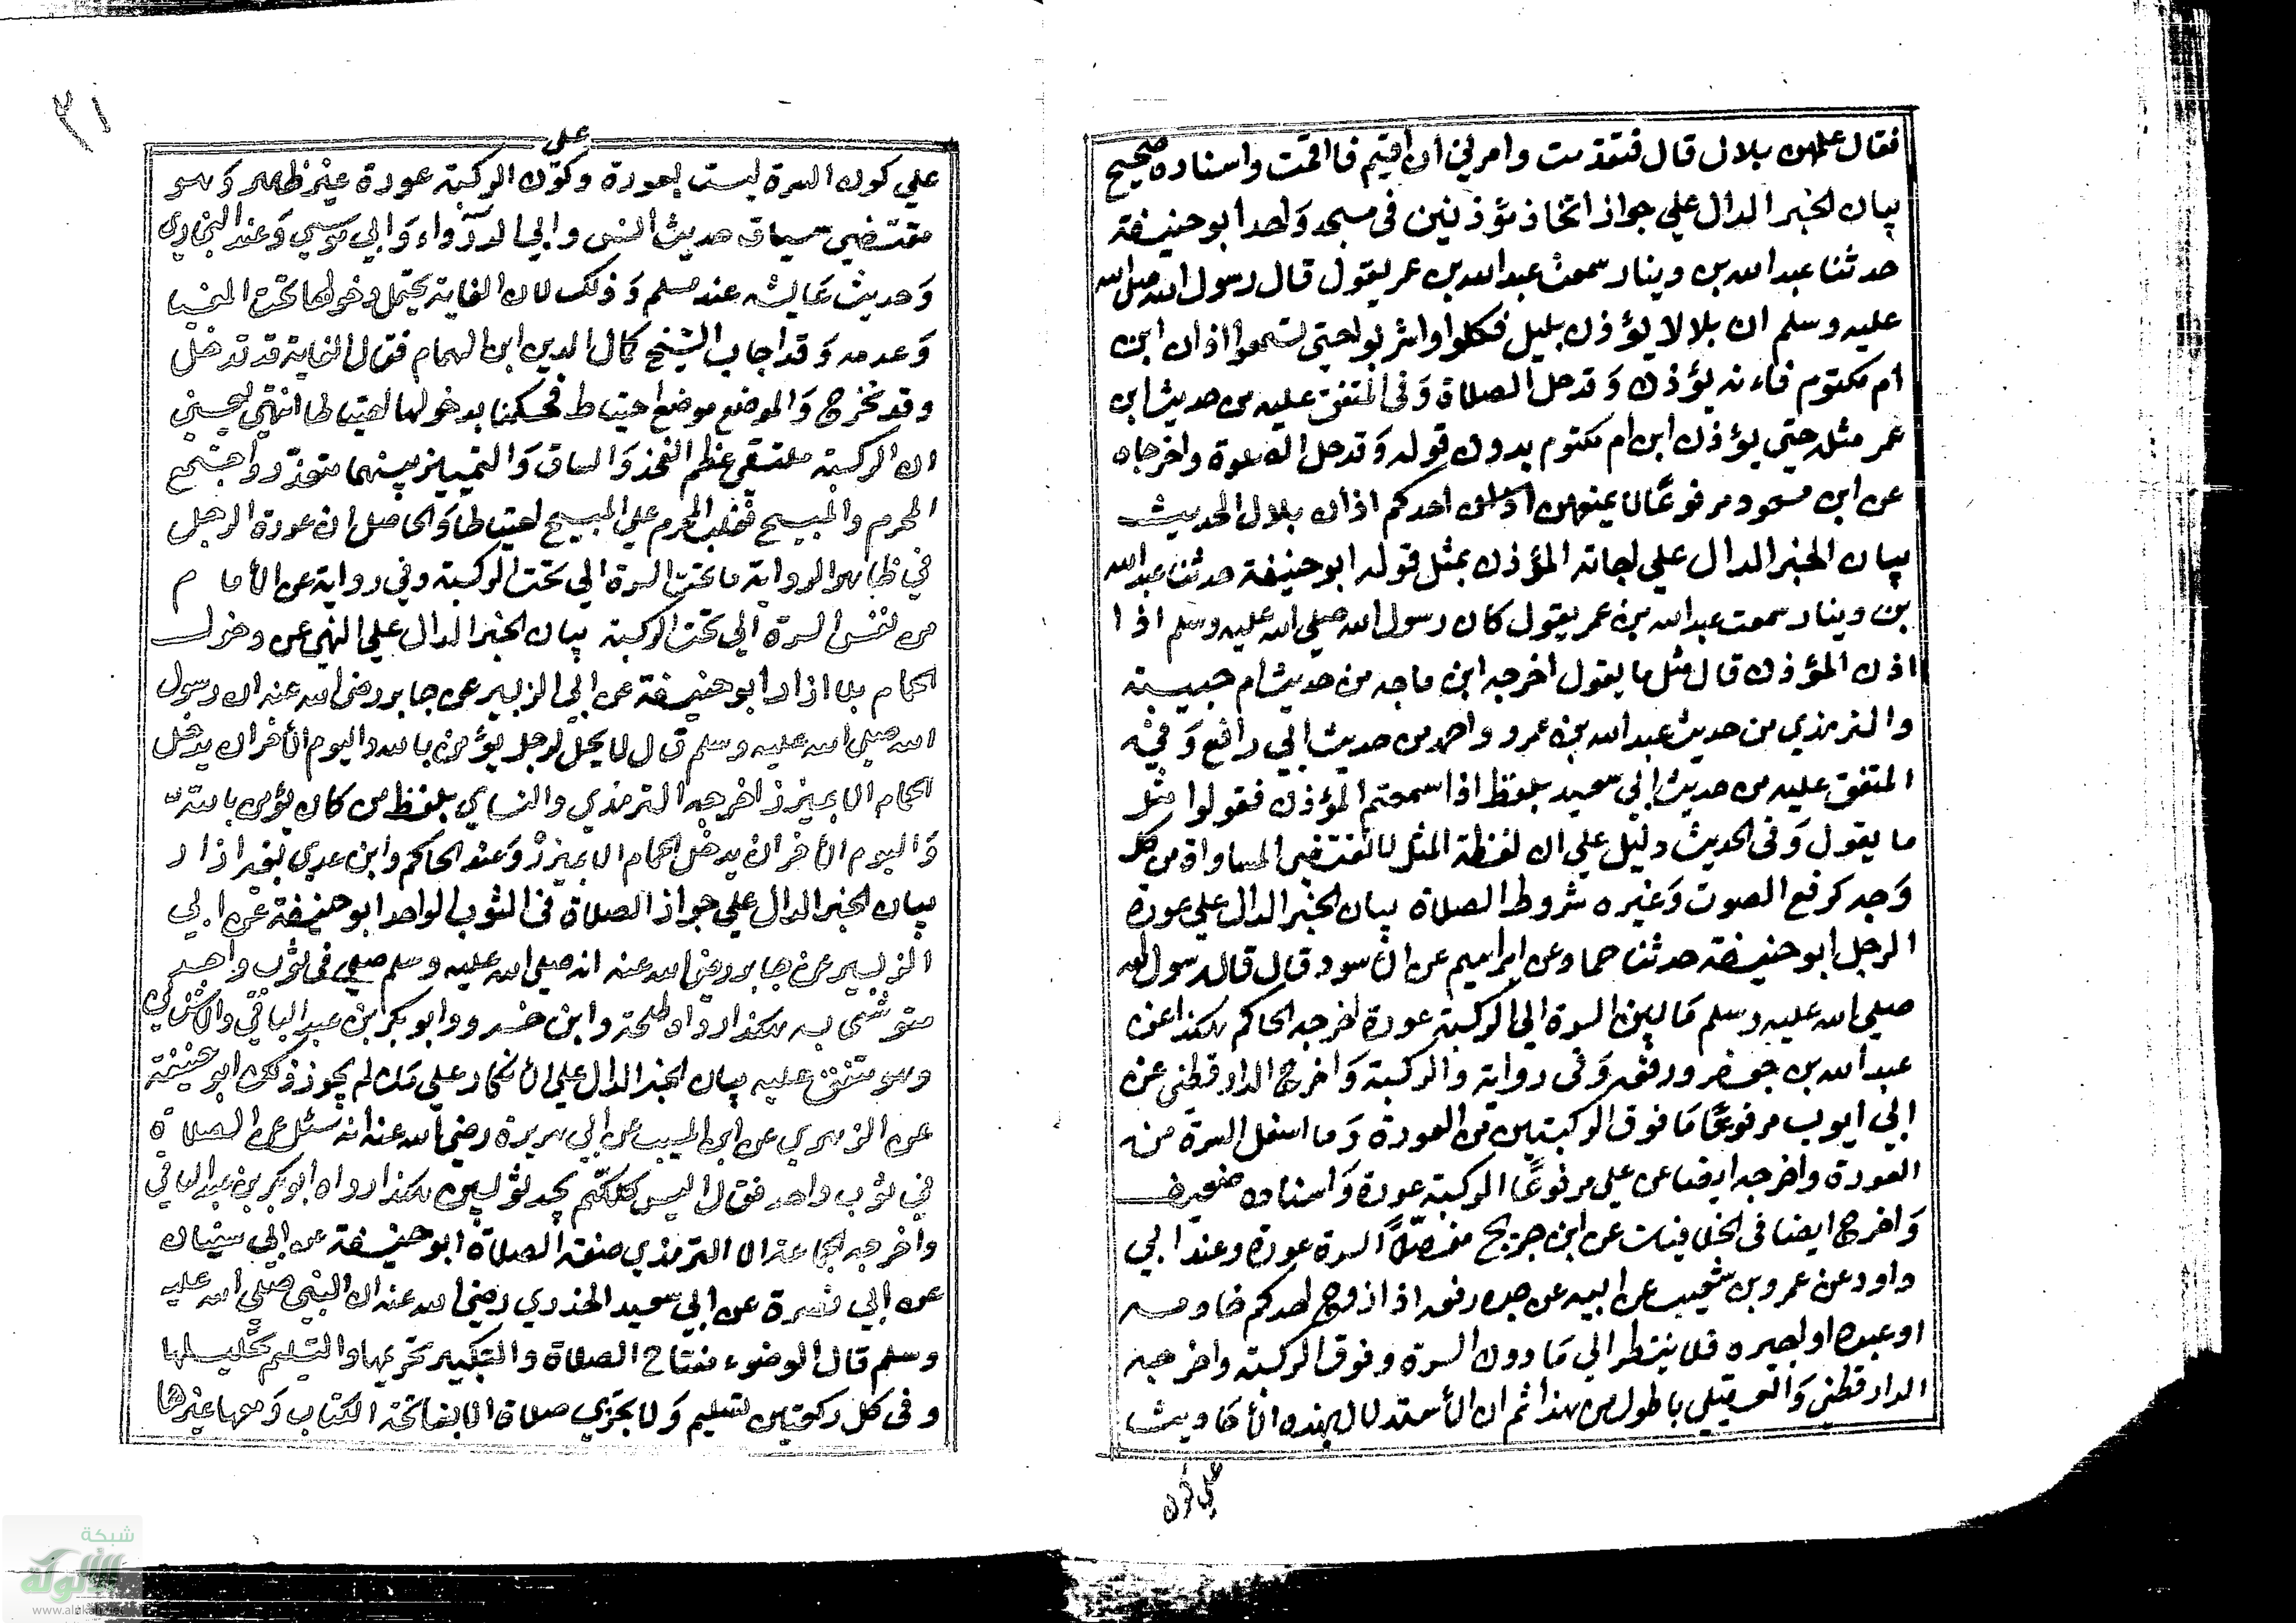 فقال علمهن بلال قال فتقدمت وامرني ان اقيم فااقمت واسناده صحيح
بيان الخبر الدال علي جواز اتخاذ مؤذنين في مسجد واحد ابو حنيفة
حدثنا عبد الله بن دينار سمعت عبد الله بن عمر يقول قال رسول الله صلي الله
عليه وسلم ان بلالا يؤذن بليل فكلوا واشربوا حتي تسمعوا اذان ابن
ام مكتوم فاءنه يؤذن وقد حل الصلاة وفي المتفق عليه من حديث ابن
عمر مثله حتي يؤذن ابن ام مكتوم بدون قوله وقد حل الصلوة واخرجاه
عن ابن مسعود مرفوعًا لا يمنعهن احدكم اذان بلال الحديث
بيان الخبر الدال علي اجابة المؤذن بمثل قوله ابو حنيفة حدثنا عبد الله
بن دينار سمعت عبد الله بن عمر يقول كان رسول الله صلي الله عليه وسلم اذا
اذن المؤذن قال مثل ما يقول اخرجه ابن ماجه من حديث ام حبيبة
والترمذي من حديث عبد الله بن عمرو واحمد من حديث ابي رافع وفيه
المتفق عليه من حديث ابي سعيد بلفظ اذا سمعتم المؤذن فقولوا مثل
ما يقول وفي الحديث دليل علي ان لفظة المثل لا تقتضي المساواة من كل
وجه كرفع الصوت وغيره شروط الصلاة بيان الخبر الدال علي عورة
الرجل ابو حنيفة حدثنا حماد عن ابراهيم عن الأسود قال قال رسول الله
صلي الله عليه وسلم ما بين السرة الي الركبة عورة اخرجه الحاكم هكذا عن
عبد الله بن جعفر ورفعه وفي رواية والركبة واخرج الدارقطني عن
ابي ايوب مرفوعًا ما فوق الركبتين من العورة وما اسفل السرة من
العورة واخرجه ايضا عن علي مرفوعًا الركبة عورة واسناده ضعيف
واخرج ايضا في الخلافيات عن ابن جريج معضلاً السرة عورة وعند ابي
داود عن عمرو بن شعيب عن ابيه عن جده رفعه اذا زوج احدكم خادمه
او عبده او اجيره فلا ينظر الي ما دون السرة وفوق الركبة واخرجه
الدارقطني والعقيلي باطول من هذا ثم ان الأستدلال بهذه الأحاديث
علي كون
٣١
علي
علي كون السرة ليست بعورة وكون الركبة عورة غير ظهر وهو
مقتضي سياق حديث انس وابي الدرداء وابي موسي وعند البخاري
وحديث عايشه عند مسلم وذلك لان الغاية يحتمل دخولها تحت المغيا
وعدمه وقد اجاب الشيخ كمال الدين ابن الهمام فقال الغاية قد تدخل
وقد تخرج والموضع موضع احتياط فحكمنا بدخولها احتياطا انتهي يعني
ان الركبة ملتقي عظم الفخذ والساق والتمييز بينهما متعذر واجتمع
المحرم والمبيح فغلب المحرم علي المبيح احتياطا والحاصل ان عورة الرجل
في ظاهر الرواية ما تحت السرة الي تحت الركبة وفي رواية عن الأمام
من نفس السرة الي تحت الركبة بيان الخبر الدال علي النهي عن دخول
الحمام بلا ازار ابو حنيفة عن ابي الزبير عن جابر رضي الله عنه ان رسول
الله صلي الله عليه وسلم قال لا يحل لرجل يؤمن بالله واليوم الأخر ان يدخل
الحمام الا بميزر اخرجه الترمذي والنساي بلفظ من كان يؤمن بالله
واليوم الأخر ان يدخل الحمام الا بميزر وعند الحاكم وابن عدي بغير ازار
بيان الخبر الدال علي جواز الصلاة في الثوب الواحد ابو حنيفة عن ابي
الزبير عن جابر رضي الله عنه انه صلي الله عليه وسلم صلي في ثوب واحد
متوشحا به هكذا رواه طلحة وابن خسرو وابو بكر ابن عبد الباقي
وهو متفق عليه بيان الخبر الدال علي الأنكار علي من لم يجوز ذلك ابو حنيفة
عن الزهري عن ابن المسيب عن ابي هريرة رضي الله عنه انه سئل عن الصلاة
في ثوب واحد فقال اليس كلكم يجد ثوبين هكذا رواه ابو بكر بن عبد الباقي
واخرجه الجماعة الا الترمذي صفة الصلاة ابو حنيفة عن ابي سفيان
عن ابي نضرة عن ابي سعيد الخدري رضي الله عنه ان النبي صلي الله عليه
وسلم قال الوضوء مفتاح الصلاة والتكبير تحريمها والتسليم تحليلها
وفي كل ركعتين تسليم ولا يجزي صلاة الا بفاتحة الكتاب ومعها غيرها
شبكة
الألوكة
www.alukah.net